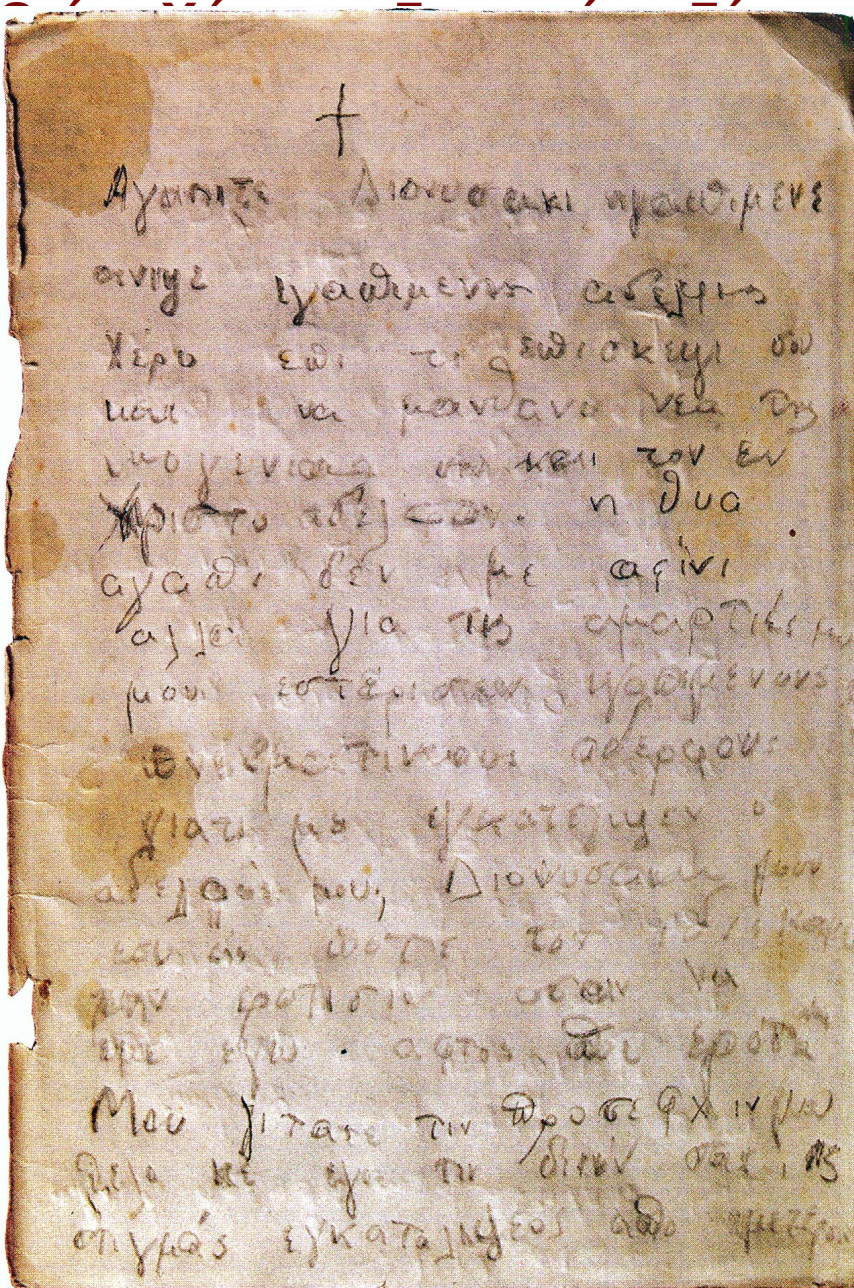 Αγαπιτε Διονυσακι ηγαπιμενε
ιγαπιμενις αδελφις
Χερο επι τι επισκεψι σου
και να μανθανο νεα της
ικογενιασ σου και τον εν
Χριστο αδελφον. η θια
αγαπι δεν με αφινι
αλλα για τις αμαρτιες μου
μου εστερισεν ιγαπιμενους
πνευματικους αδερφους
γιατι με εγκατελιψεν ο
αδελφος μου, Διονυσακι μου
ερωτισιν οσαν να
εγω αφτος που εροτα
Μου γιτατε τιν προσεφχιν μου
θελο κε εγο τιν δικιν σας, της
στιγμας εγκαταλιψεος απο